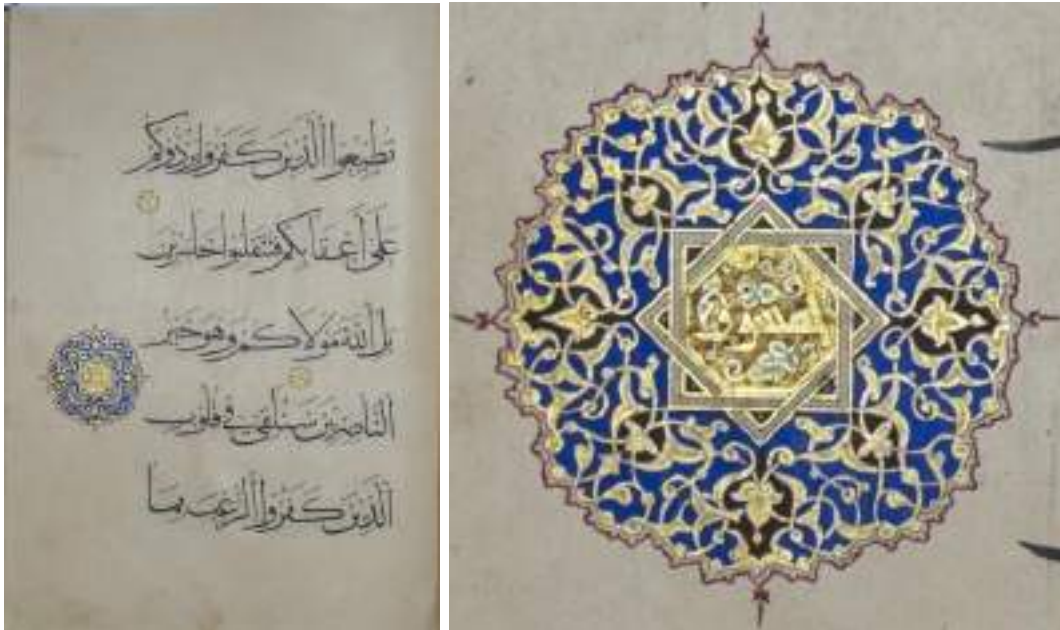 تُطِيعُوا الَّذِينَ كَفَرُوا يَرُدُّوكُمْ
عَلَى أَعْقَابِكُمْ فَتَنْقَلِبُوا خَاسِرِينَ
بَلِ اللَّهُ مَوْلَاكُمْ وَهُوَ خَيْرُ
النَّاصِرِينَ سَنُلْقِي فِي قُلُوبِ
الَّذِينَ كَفَرُوا الرُّعْبَ بِمَا